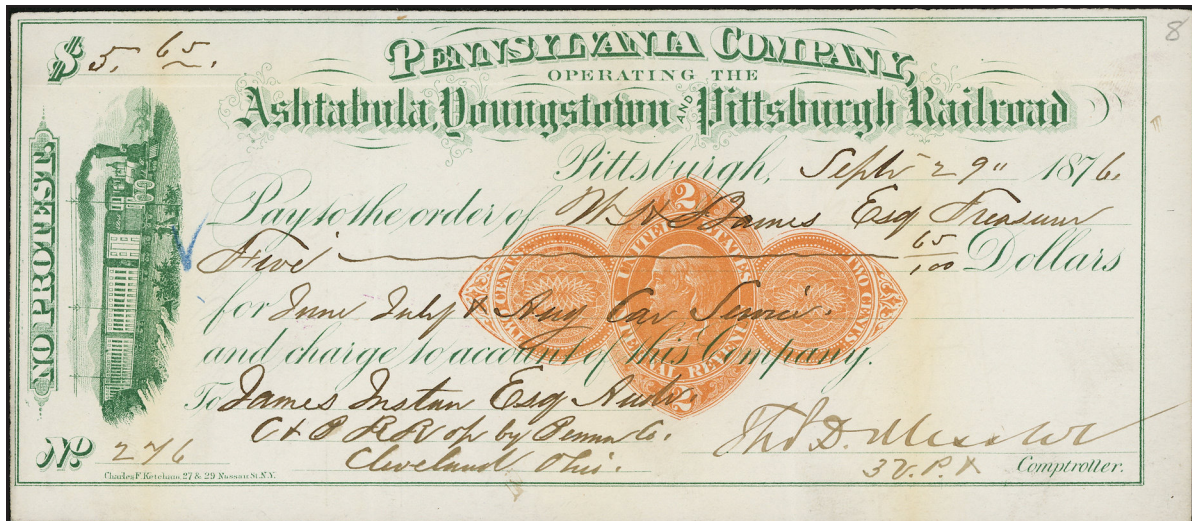 8
$ 5. 65.
PENNSYLVANIA COMPANY,
OPERATING THE
Ashtabula, Youngstown AND Pittsburgh Railroad
Pittsburgh, Sept 29" 1876
Pay to the order of W H Barnes Esq Treasurer
Five 65/100 Dollars
for June July & Aug Car Service
and charge to account of this Company.
To James Esq Audr.
C & P RR op by Penna Co.
Cleveland Ohio.
Thos D. Messler
3 V. P. & Comptroller.
NO PROTEST
No 276
Charles F. Ketcham, 27 & 29 Nassau St. N.Y.
2
UNITED STATES
TWO CENTS
TWO CENTS
INTERNAL REVENUE
2